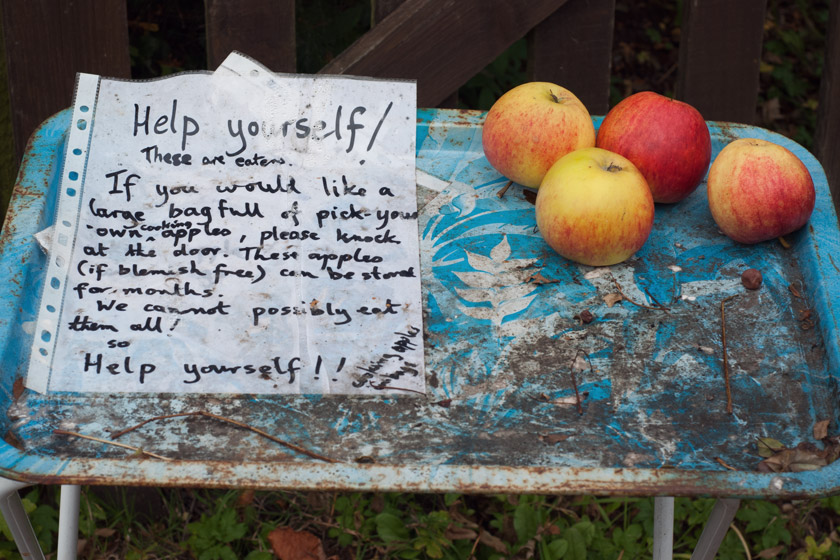 Help yourself!
These are eaters.
If you would like a
large bag full of pick-your
-own cooking apples, please knock
at the door. These apples
(if blemish free) can be stored
for months.
We cannot possibly eat
them all!
so
Help yourself!!
apples